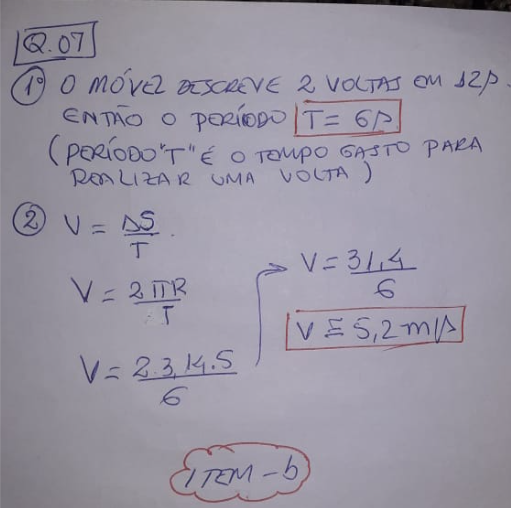 Q.07
1º O MÓVEL DESCREVE 2 VOLTAS EM 12s.
ENTÃO O PERÍODO T = 6s
(PERÍODO "T" É O TEMPO GASTO PARA
REALIZAR UMA VOLTA)
2 V = ΔS/T.
V = 2πR/T
V = 2.3,14.5/6
V = 31,4/6
V ≅ 5,2 m/s
ITEM - b